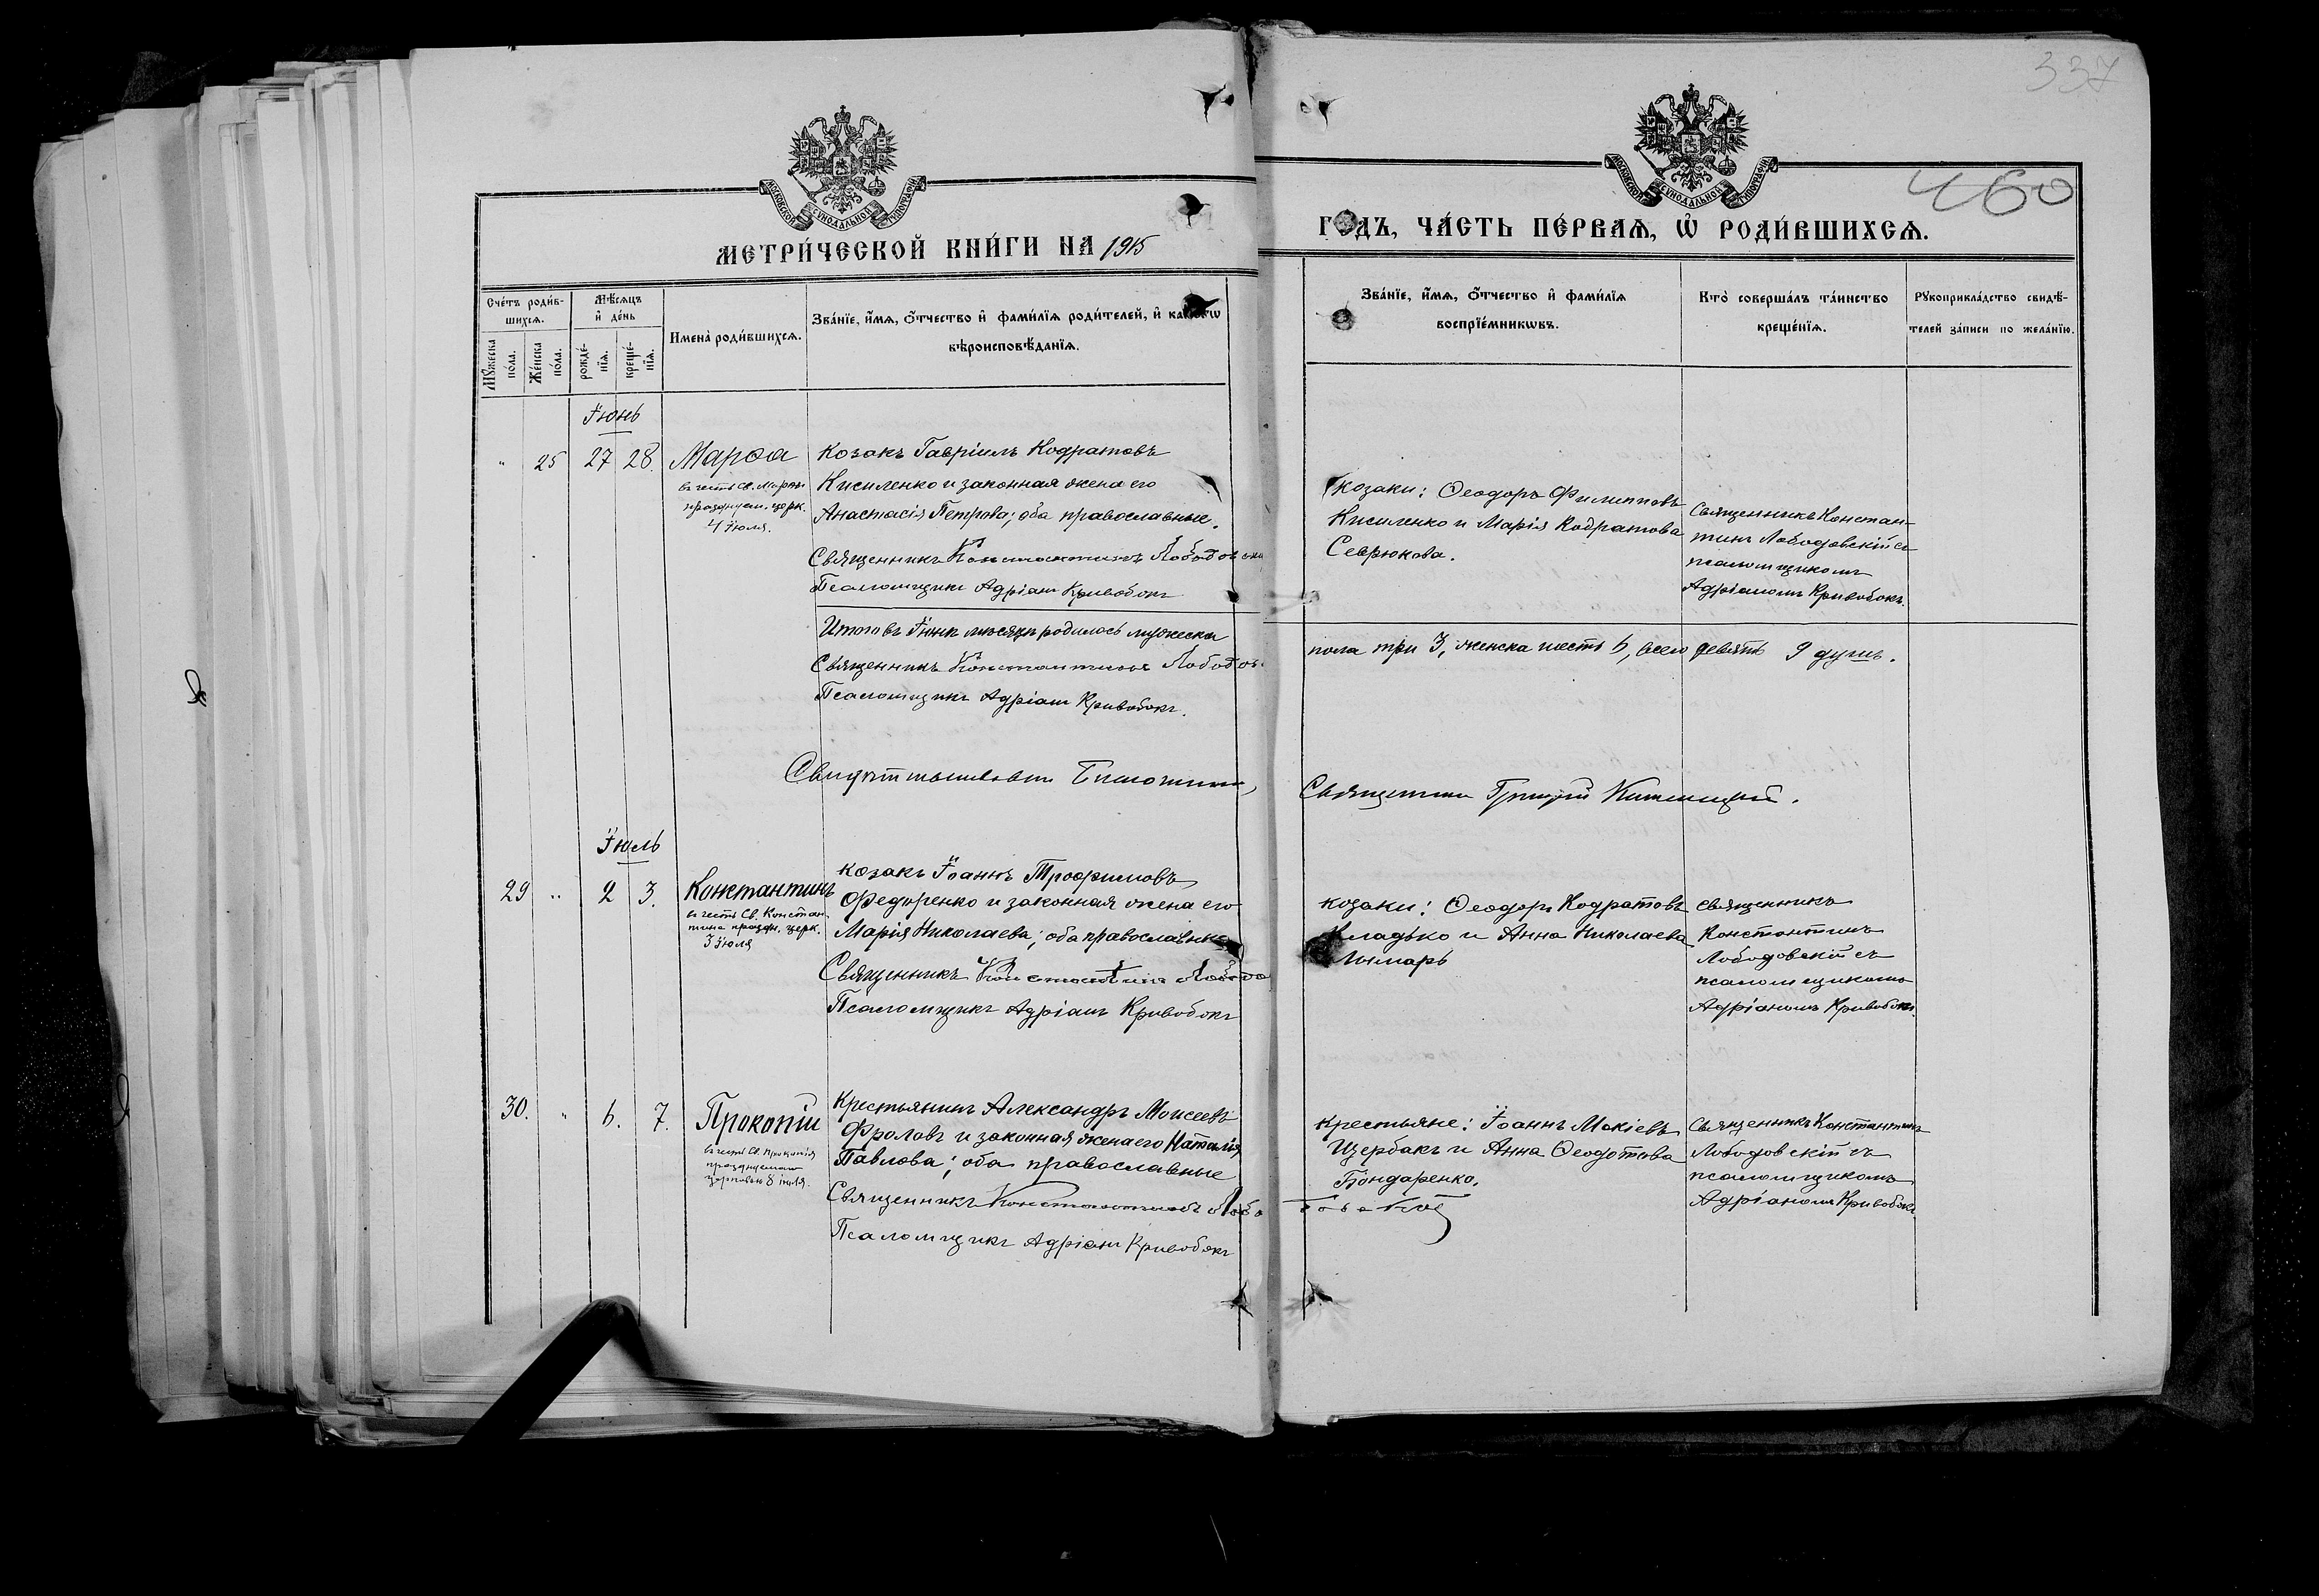 337
460
МОСКОВСКОЙ СѴНОДАЛЬНОЙ ТИПОГРАФІИ
МОСКОВСКОЙ СѴНОДАЛЬНОЙ ТИПОГРАФІИ
МЕТРИ́ЧЕСКОЙ КНИ́ГИ НА 1915
ГОДЪ, ЧА́СТЬ ПЕ́РВАѦ, Ѡ҆ РОДИ́ВШИХСѦ.
Сче́тъ роди́в-
шихсѧ.
Мѣ́сѧцъ
и҆ де́нь
Мꙋ́жеска
по́ла.
Же́нска
по́ла.
рожде́-
нїѧ.
креще́-
нїѧ.
Имена̀ роди́вшихсѧ.
Зва́нїе, и҆́мѧ, ѻ҆́тчество и҆ фами́лїѧ роди́телей, и҆
вѣроисповѣ́данїѧ.
Зва́нїе, и҆́мѧ, ѻ҆́тчество и҆ фами́лїѧ
воспрїе́мникѡвъ.
Кто̀ соверша́лъ та́инство
креще́нїѧ.
Рꙋкоприкла́дство свидѣ́-
телей за́писи по жела́нїю.
Іюнь
" 25 27 28. Марѳа
въ честь Св. Марѳы
празднуем. церк.
4 Іюля.
Козакъ Гавріилъ Кодратовъ
Кисиленко и законная жена его
Анастасія Петрова; оба православные.
Священникъ Константинъ
Псаломщикъ Адріанъ Кривобокъ
козаки: Ѳеодоръ Филипповъ
Кисиленко и Марія Кодратова
Севрюкова.
Священникъ Констан-
тинъ Лободовскій съ
псаломщикомъ
Адріаномъ Кривобокъ.
Итого въ Іюнѣ мѣсяцѣ родилось мужеска
пола три 3, женска шесть 6, всего девять 9 душъ.
Священникъ Константинъ
Псаломщикъ Адріанъ Кривобокъ.
Священникъ Григорій
Іюль
29 " 2 3. Константинъ
въ честь Св. Констан-
тина праздн. церк.
3 Іюля
козакъ Іоаннъ Трофимовъ
Федоренко и законная жена его
Марія Николаева; оба православные
Священникъ Константинъ
Псаломщикъ Адріанъ Кривобокъ
козаки: Ѳеодоръ Кодратовъ
и Анна Николаева
Лымарь
Священникъ
Константинъ
Лободовскій съ
псаломщикомъ
Адріаномъ Кривобокъ.
30. " 6. 7. Прокопій
въ честь Св. Прокопія
празднуемаго
церковью 8 іюля.
Крестьянинъ Александръ Моисеевъ
Фроловъ и законная жена его Наталія
Павлова; оба православные
Священникъ Константинъ
Псаломщикъ Адріанъ Кривобокъ
крестьяне: Іоаннъ Мокіевъ
Щербакъ и Анна Ѳеодотова
Бондаренко.
Священникъ Константинъ
Лободовскій съ
псаломщикомъ
Адріаномъ Кривобокъ.